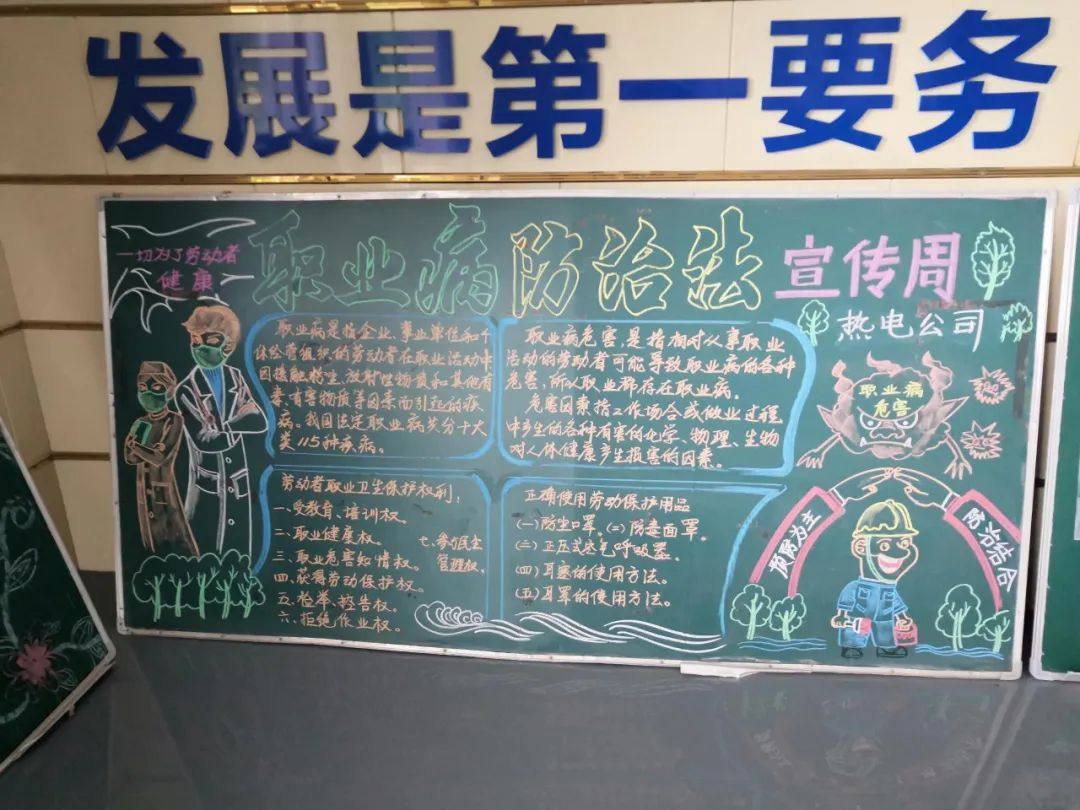 发展是第一要务
一切为了劳动者
健康
职业病防治法宣传周
热电公司
职业病是指企业、事业单位和个
体经营组织的劳动者在职业活动中
因接触粉尘、放射性物质和其他有
毒有害物质等因素而引起的疾
病。我国法定职业病共分十大
类115种疾病。
职业病危害,是指相对从事职业
活动的劳动者可能导致职业病的各种
危害,所以职业都存在职业病。
危害因素指工作场合或做业过程
中产生的各种有害的化学、物理、生物
对人体健康产生损害的因素。
职业病
危害
劳动者职业卫生保护权利:
一、受教育、培训权。
二、职业健康权。
三、职业危害知情权。
四、获需劳动保护权。
五、检举、控告权。
六、拒绝作业权。
七、参与民主
管理权。
正确使用劳动保护用品
(一)防尘口罩。(二)防毒面罩。
(三)正压式空气呼吸器。
(四)耳塞的使用方法。
(五)耳罩的使用方法。
预防为主
防治结合